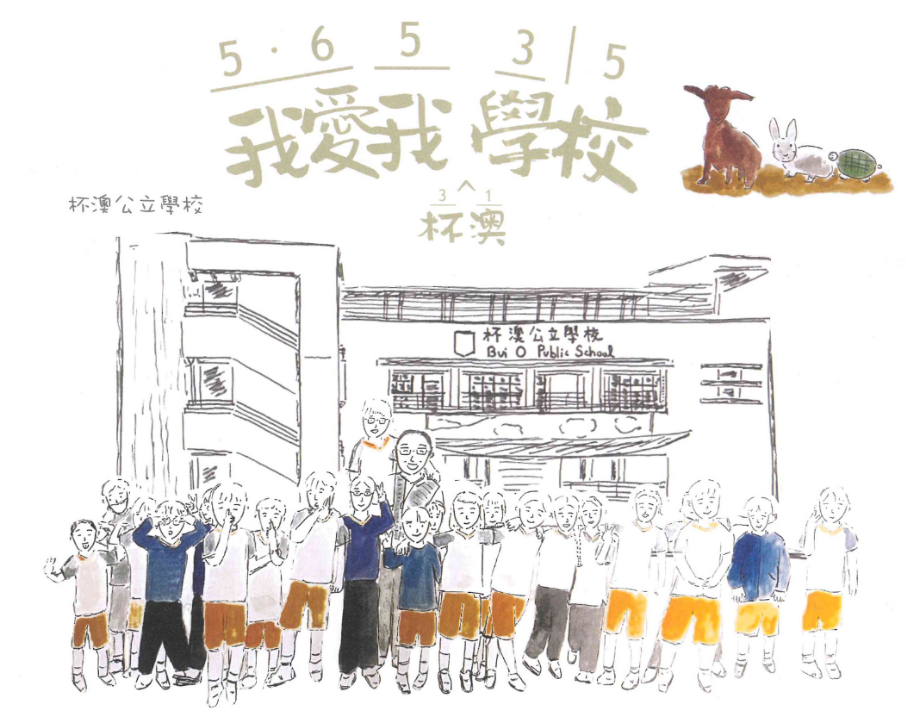 5 · 6 5 3 | 5
我愛我 學校
3 ^ 1
杯澳
杯澳公立學校
杯澳公立學校
Bui O Public School